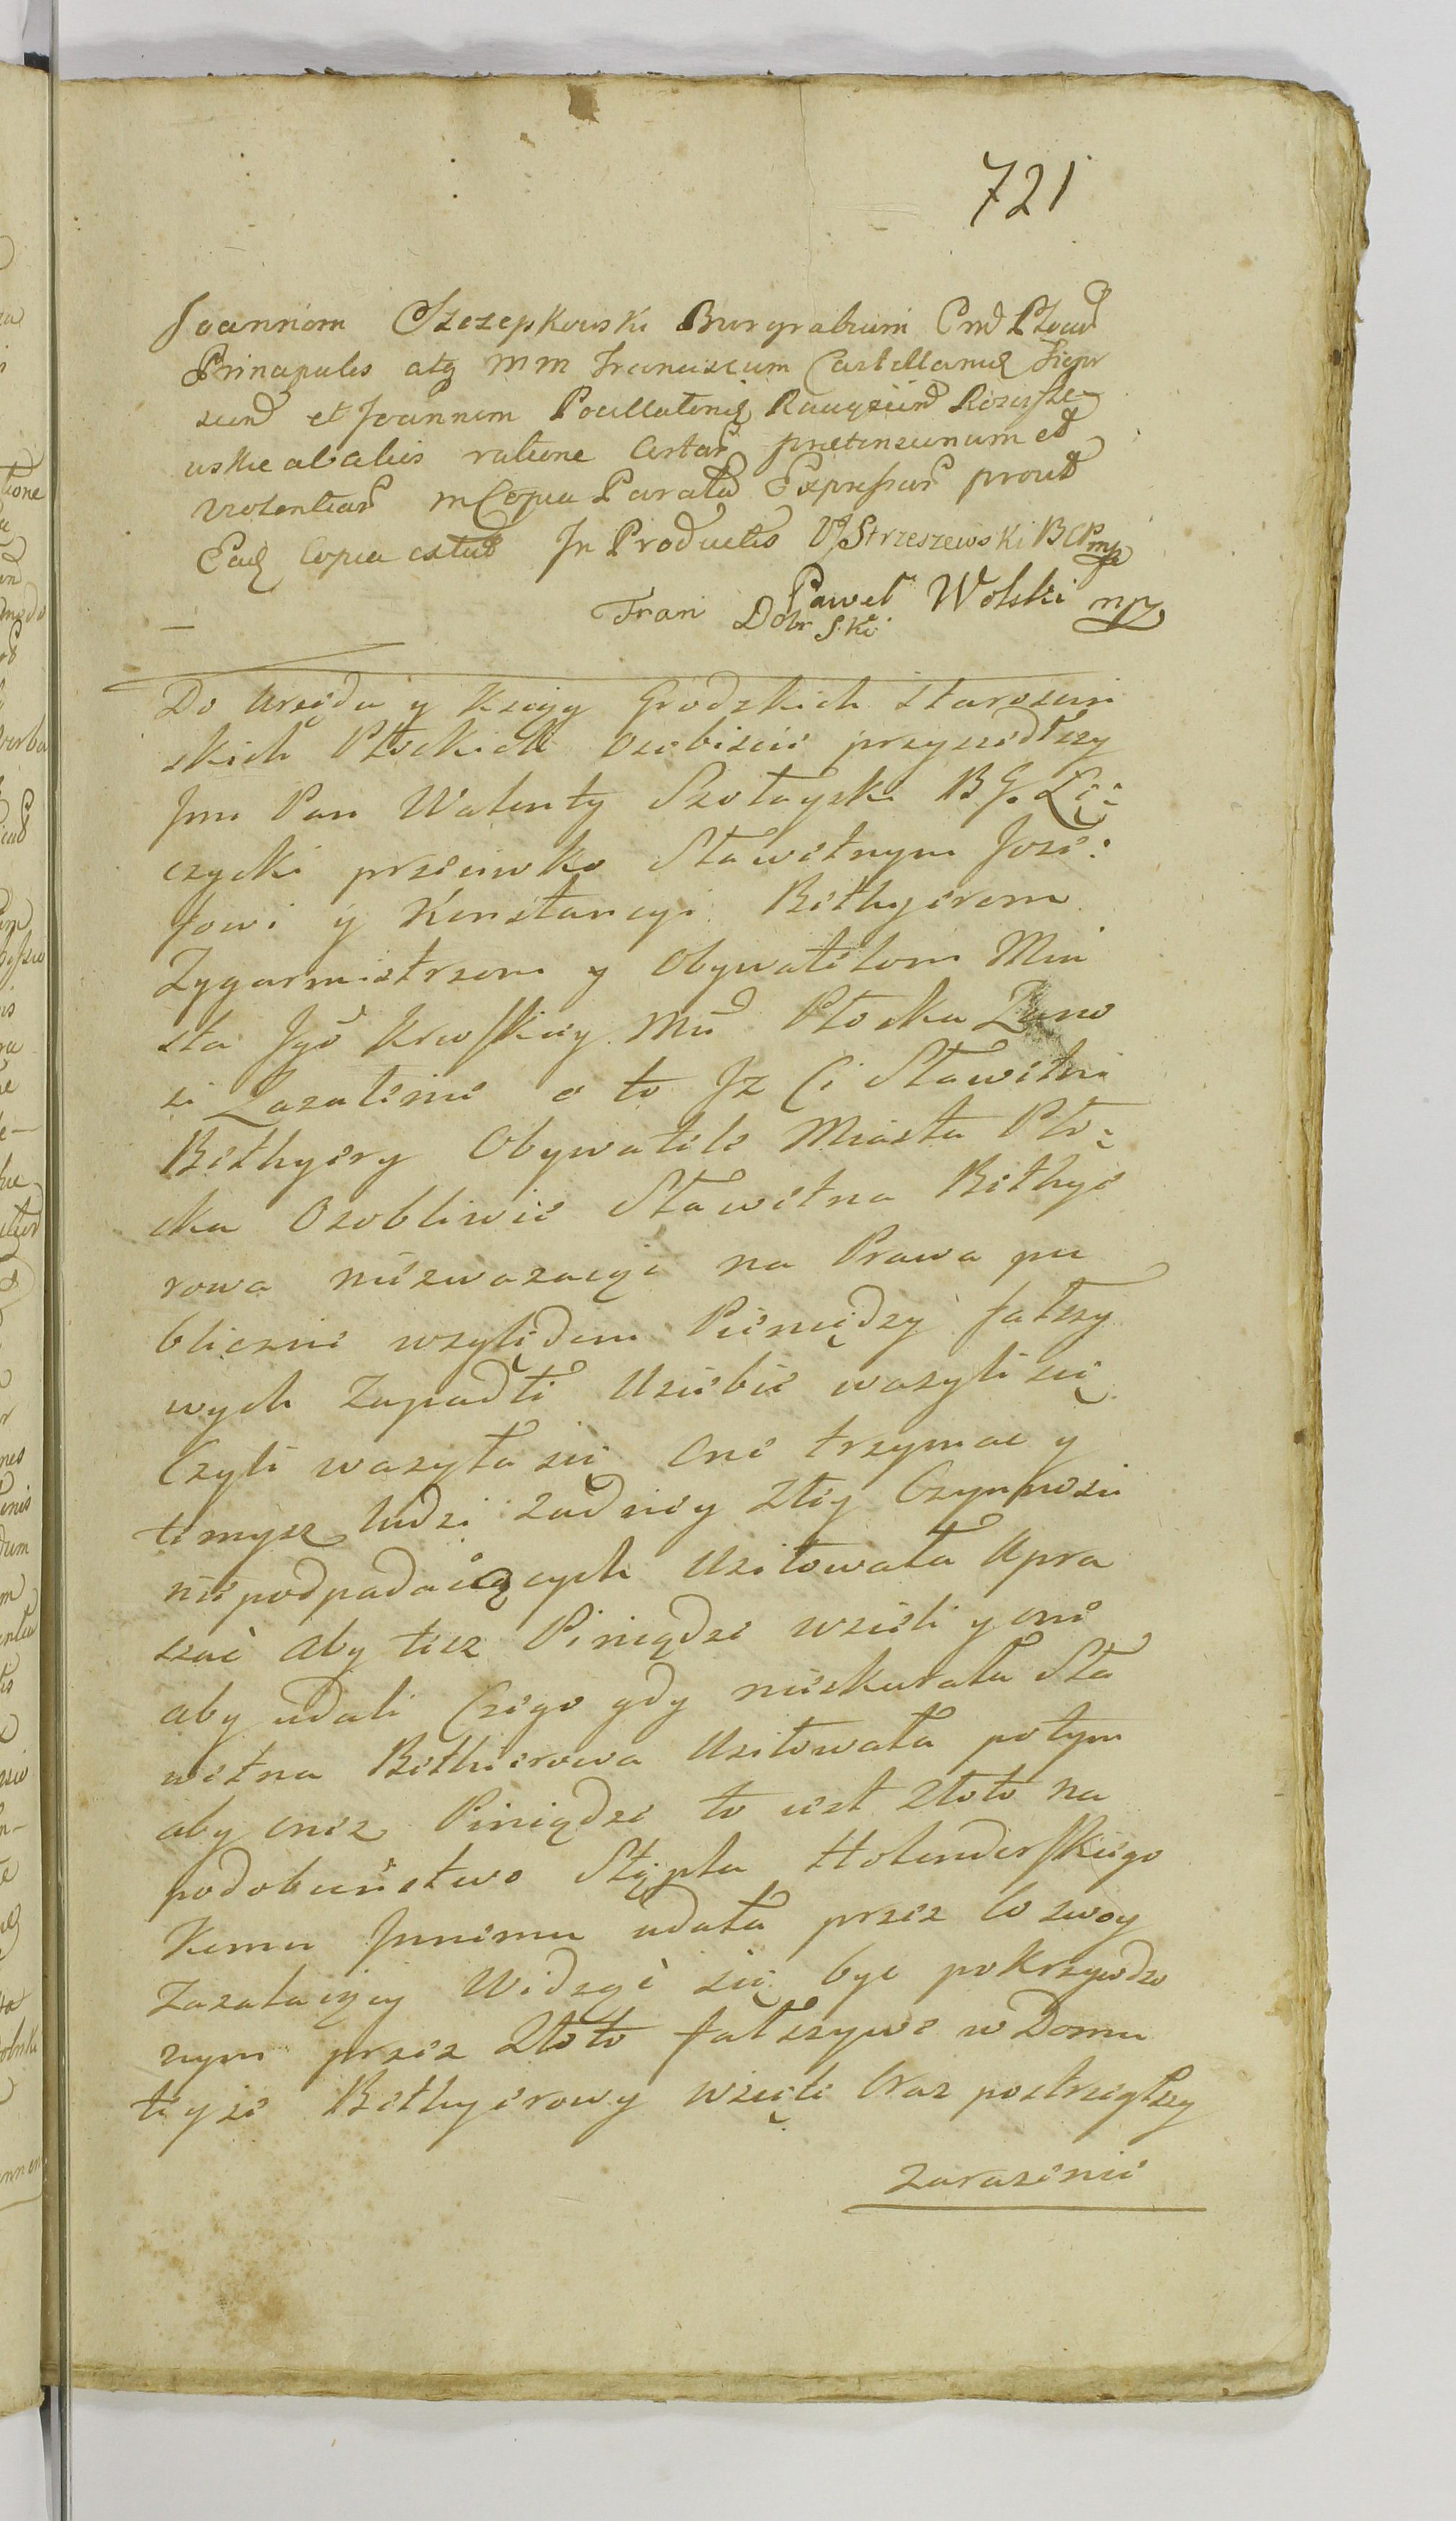 721
Joannem Szczepkowski Burgrabium Cnd Plocen
Principales atq mm Franciscum Castellanid Sierp
scend et Joannem Pocillatorid Raciązsend Rosciszew
uskie ab aliis ratione certar prætensionum et
violentiar in Copia Parata Expressar prout
Ead Copia estut In Productis VJStrzeszewski BCPmp
Paweł Wolski mp
Fran Dobrski
Do Urzędu y Xsiąg Grodzkich Starościn
skich Płockich osobiscie przyszedłszy
Jmć Pan Walenty Szołayski BG. Łę:
czycki przeciwko Sławetnym Joze:
fowi y Konstancyi Bethyerom
Zygarmistrzom y Obywatelom Mia
sta Jgo Krolskiey Mci Płocka Zano
si Zazalenie o to Iz Ci Sławetni
Bethyery Obywatele Miasta Pło:
cka Osobliwie Sławetna Bethye
rowa niezwazaiąc na Prawa pu
bliczne względem Pieniędzy fałszy
wych Zapadłe Usiebie wazyli się
Czyli wazyła się one trzymac y
temysz ludzi zadney złey Czynnosci
niepodpadaiących Usiłowała Upra
szac aby tesz Pieniądze wzieli y one
aby udali Czego gdy nieskurała Sła
wetna Bethierowa Usiłowała potym
aby oniz Pieniądze to iest Złoto na
podobienstwo Stępla Holenderskiego
Komu Jnnemu udała przez co swoy
Zazalaiący Widząc się byc pokrzywdzo
nym przez Złoto fałszywe w Domu
teyże Bethyerowy wzięte Oraz postrzegłszy
zarazenie